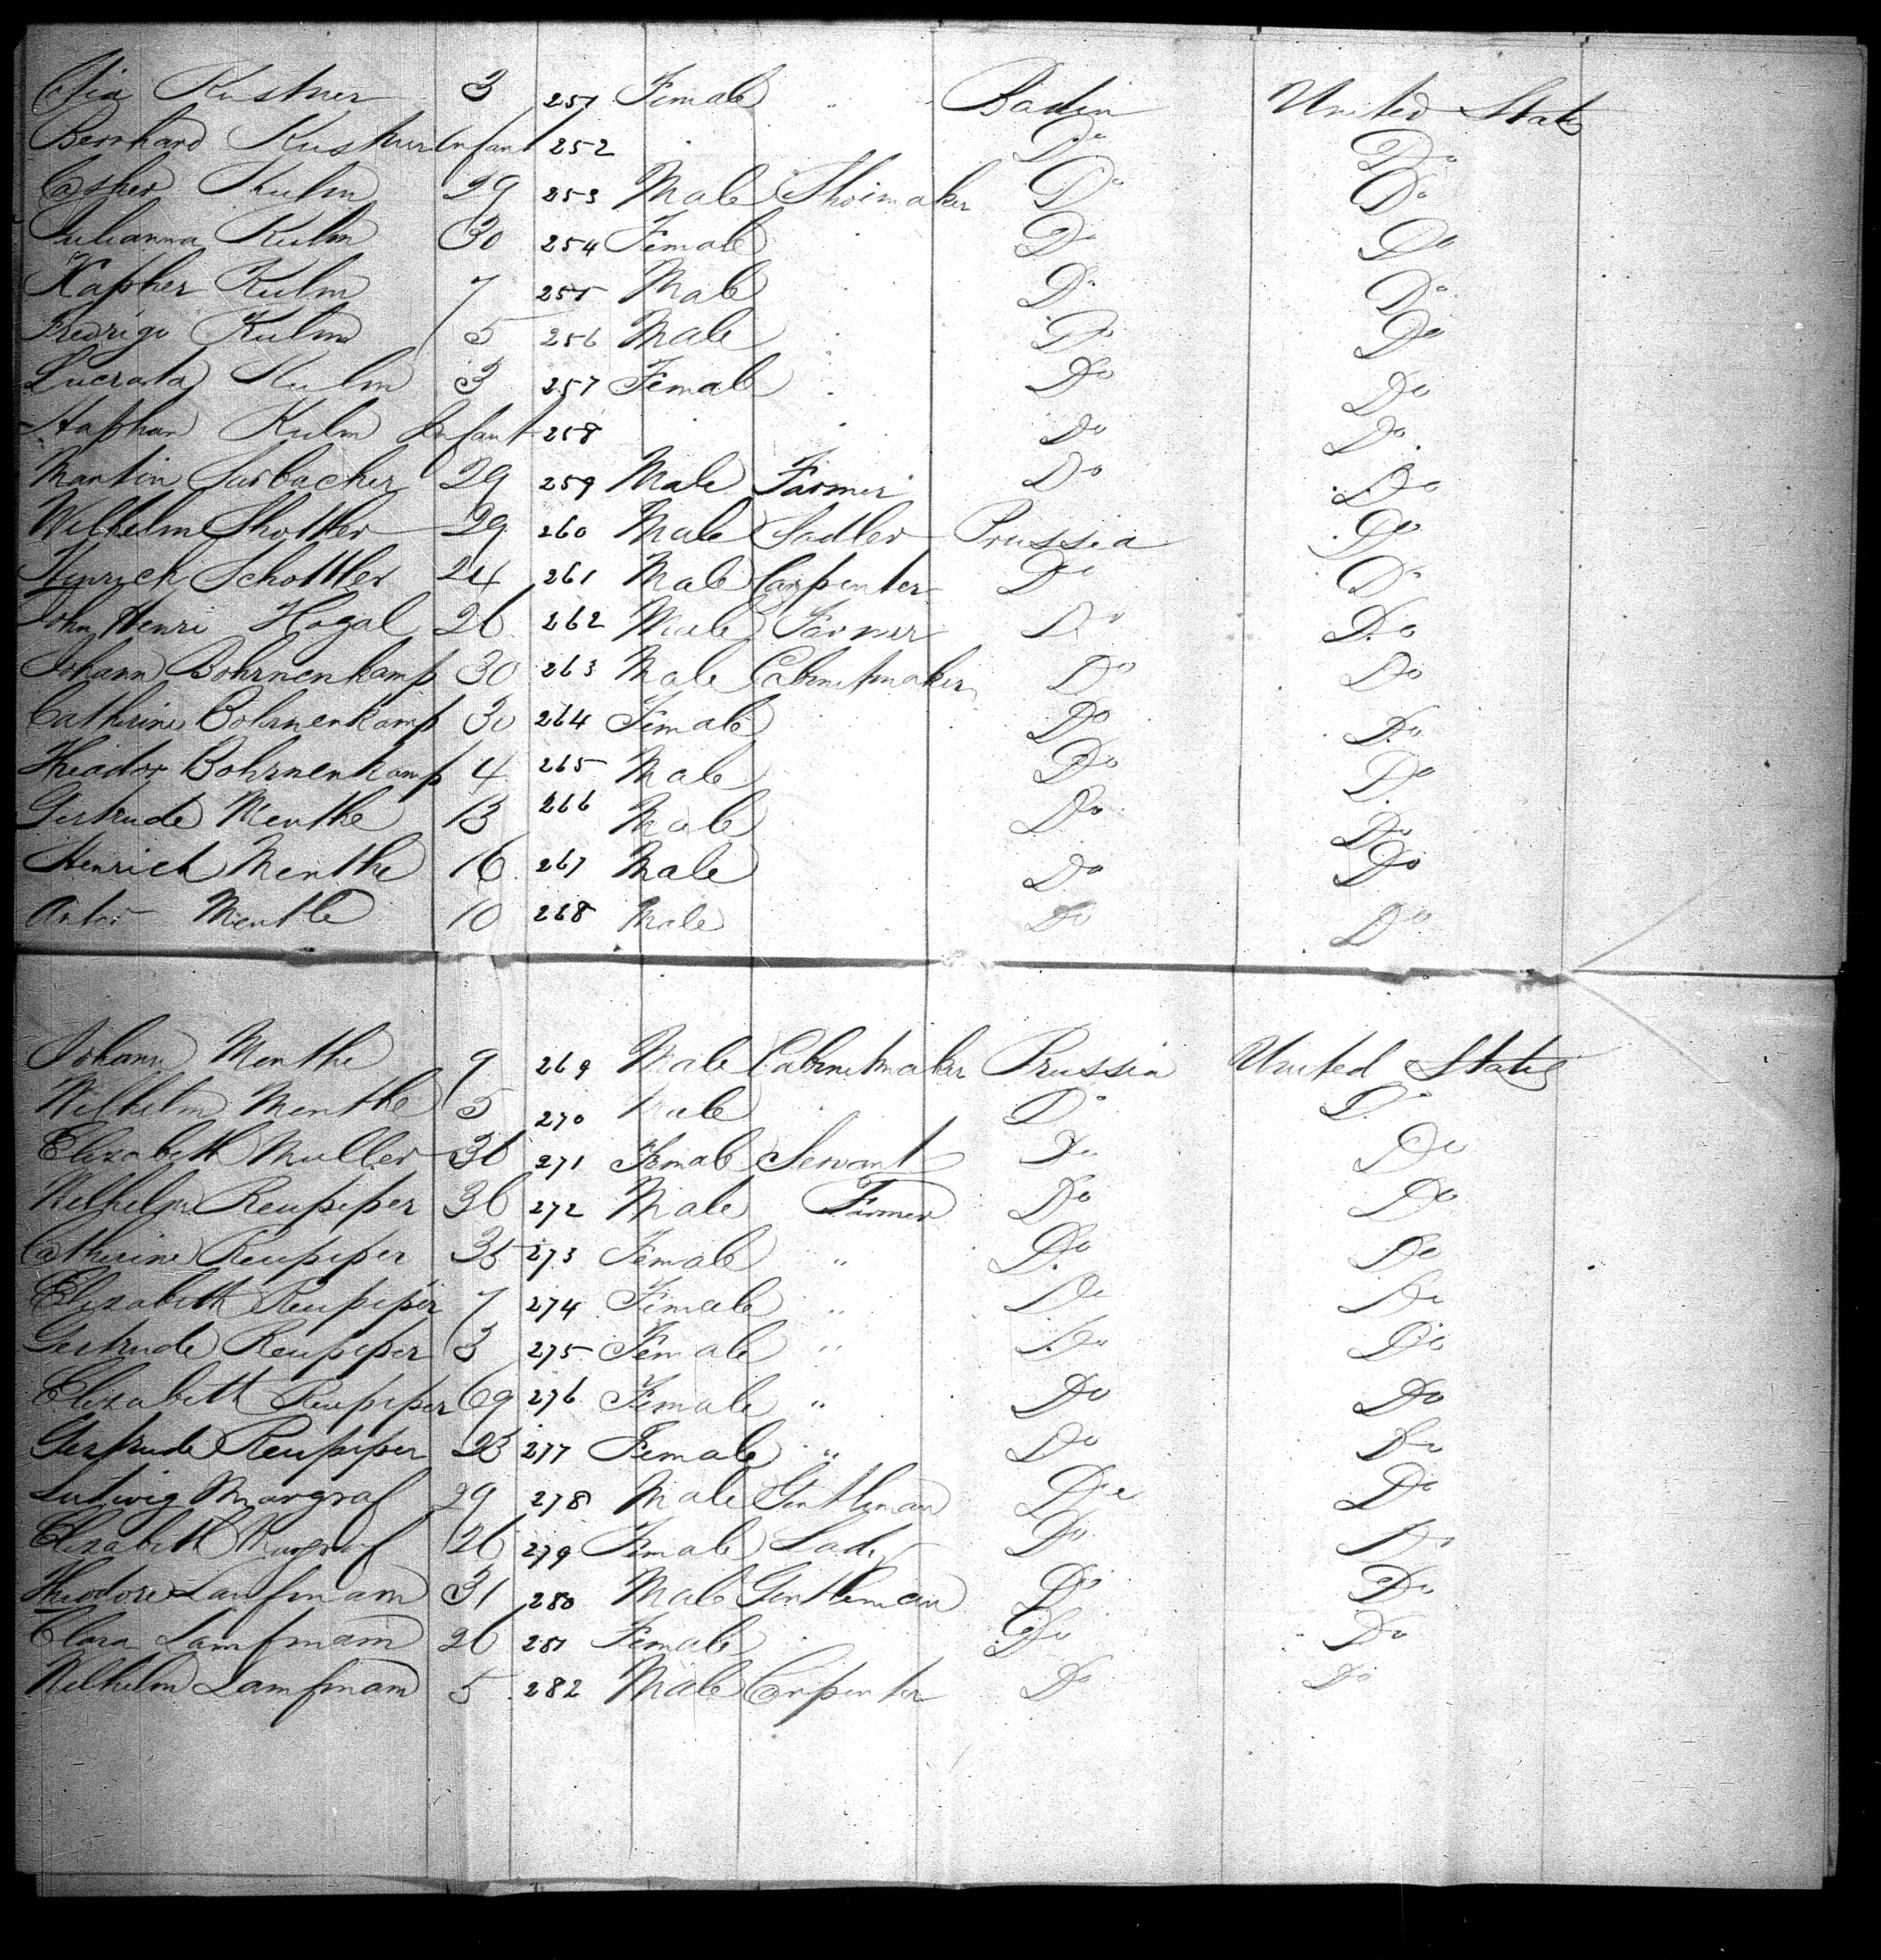 Kustner 3 251 Female " Baden United States
Bernhard Kustner Infant 252 Do Do
Casher Kulm 29 253 Male Shoimaker Do Do
Julianna Kulm 30 254 Female Do Do
Kapher Kulm 7 255 Male Do Do
Fredrigo Kulm 5 256 Male Do Do
Lucrata Kulm 3 257 Female Do Do
Staphan Kulm Infant 258 Do Do
Martin Surbacher 29 259 Male Farmer Do Do
Wilhelm Shottler 29 260 Male Sadler Prussia Do
Hinrich Schottler 24 261 Male Carpenter Do Do
John Henri Hogal 26 262 Male Farmer Do Do
Johann Bohrnenkamp 30 263 Male Cabinetmaker Do Do
Catherine Bohrnenkamp 30 264 Female Do Do
Theador Bohrnenkamp 4 265 Male Do Do
Gertrude Menthe 13 266 Male Do Do
Henrich Menthe 16 267 Male Do Do
Anton Menthe 10 268 Male Do Do
Johann Menthe 9 269 Male Cabinetmaker Prussia United States
Wilhelm Menthe 5 270 Male Do Do
Elizabeth Muller 36 271 Female Servant Do Do
Wilhelm Reupiper 36 272 Male Farmer Do Do
Catherine Reupiper 35 273 Female " Do Do
Elizabeth Reupiper 7 274 Female " Do Do
Gertrude Reupiper 3 275 Female " Do Do
Elizabeth Reupiper 69 276 Female " Do Do
Gertrude Reupiper 23 277 Female " Do Do
Lutwig Margraf 29 278 Male Gentleman Do Do
Elizabeth Margraf 26 279 Female Lady Do Do
Theodore Lamfmam 31 280 Male Gentleman Do Do
Clara Lamfmam 26 281 Female Do Do
Wilhelm Lamfmam 5 282 Male Carpenter Do Do